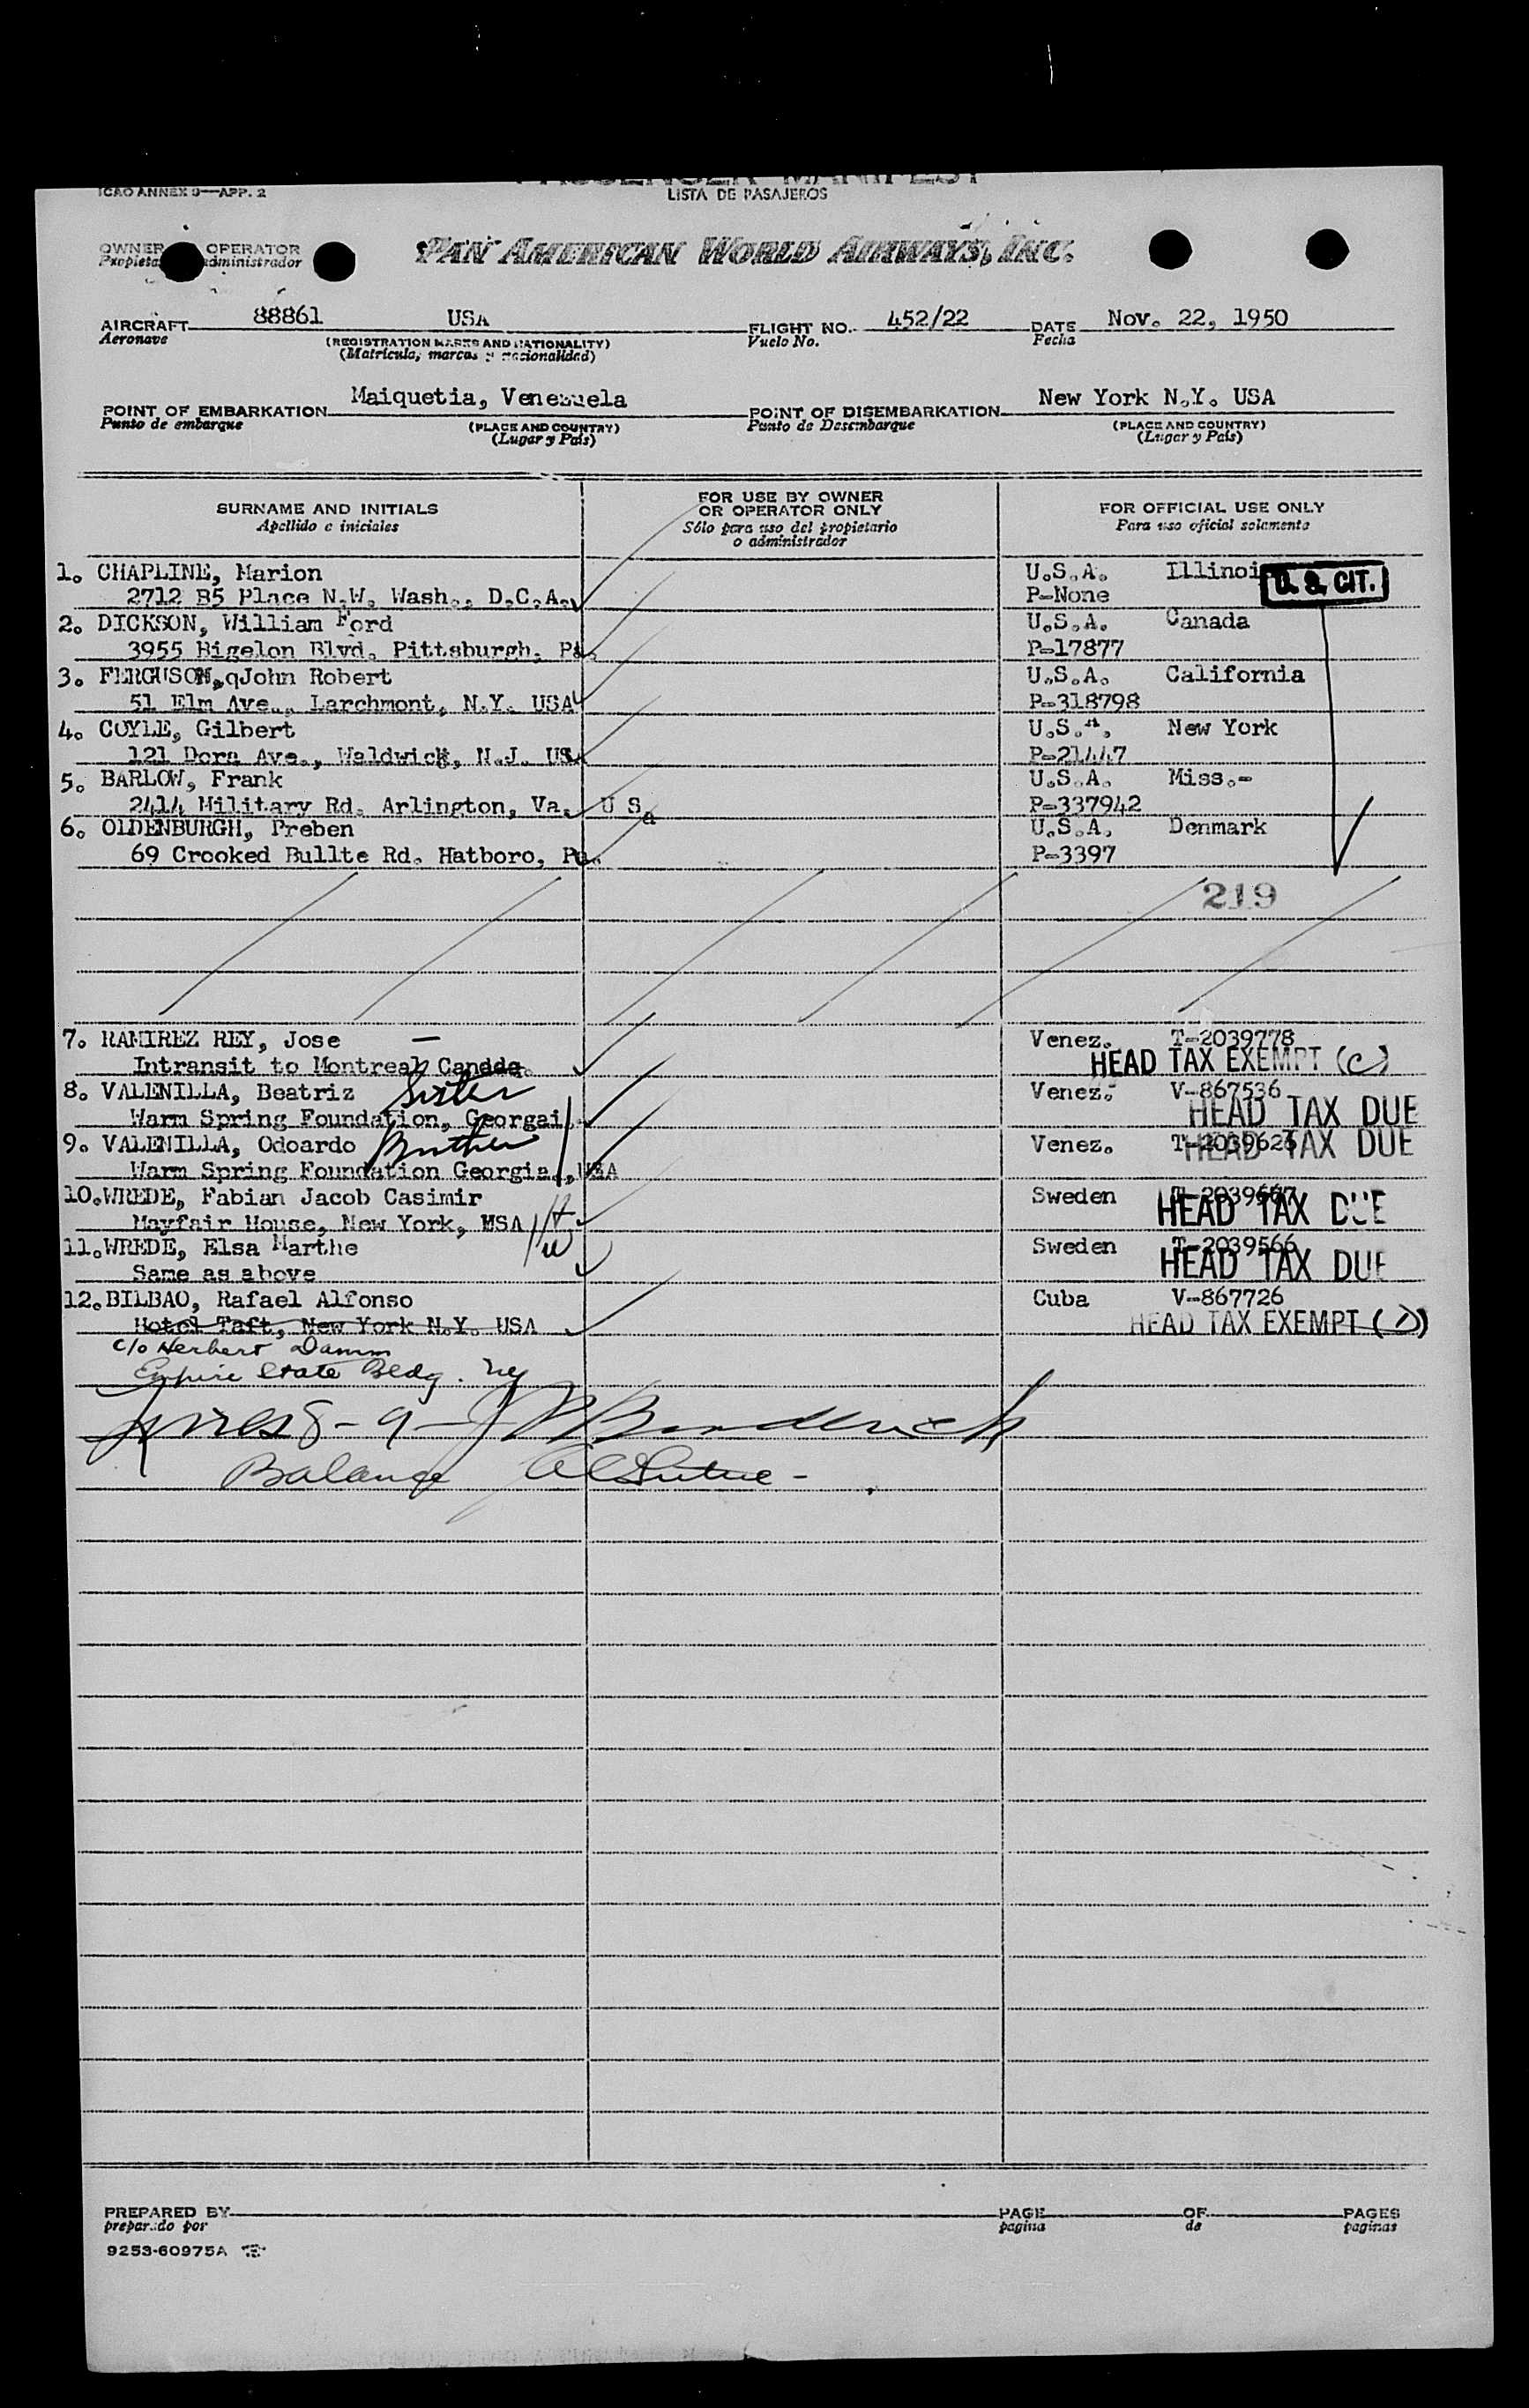 ICAO ANNEX 9—APP. 2
PASSENGER MANIFEST
LISTA DE PASAJEROS
OWNER OPERATOR
Propieta administrador
PAN AMERICAN WORLD AIRWAYS, INC.
AIRCRAFT 88861 USA FLIGHT NO. 452/22 DATE Nov. 22, 1950
Aeronave (REGISTRATION MARKS AND NATIONALITY) Vuelo No. Fecha
(Matricula, marcas y nacionalidad)
POINT OF EMBARKATION Maiquetia, Venezuela POINT OF DISEMBARKATION New York N.Y. USA
Punto de embarque (PLACE AND COUNTRY) Punto de Desembarque (PLACE AND COUNTRY)
(Lugar y País) (Lugar y País)
SURNAME AND INITIALS FOR USE BY OWNER OR OPERATOR ONLY FOR OFFICIAL USE ONLY
Apellido e iniciales Sólo para uso del propietario o administrador Para uso oficial solamente
1. CHAPLINE, Marion U.S.A. Illinoi U. S. CIT.
2712 B5 Place N.W. Wash., D.C.A. P-None
2. DICKSON, William Ford U.S.A. Canada
3955 Bigelon Blvd. Pittsburgh, Pa. P-17877
3. FERGUSON,qJohn Robert U.S.A. California
51 Elm Ave., Larchmont, N.Y. USA P-318798
4. COYLE, Gilbert U.S.A. New York
121 Dora Ave., Waldwick, N.J. US P-21447
5. BARLOW, Frank U.S.A. Miss.-
2414 Military Rd. Arlington, Va. U S a P-337942
6. OLDENBURGH, Preben U.S.A. Denmark
69 Crooked Bullte Rd. Hatboro, Pa. P-3397
219
7. RAMIREZ REY, Jose — Venez. T-2039778
Intransit to Montreal Canada HEAD TAX EXEMPT (C)
8. VALENILLA, Beatriz Sister Venez. V-867536
Warm Spring Foundation, Georgai HEAD TAX DUE
9. VALENILLA, Odoardo Brother Venez. T-2039626 HEAD TAX DUE
Warm Spring Foundation Georgia, USA
10. WREDE, Fabian Jacob Casimir Sweden T-2039667
Mayfair House, New York, USA H HEAD TAX DUE
11. WREDE, Elsa Marthe W Sweden T-2039566
Same as above HEAD TAX DUE
12. BILBAO, Rafael Alfonso Cuba V-867726
Hotel Taft, New York N.Y. USA HEAD TAX EXEMPT (D)
c/o Herbert Damm
Empire State Bldg. Ny
8-9- Broderick
Balance
PREPARED BY PAGE OF PAGES
preparado por pagina de paginas
9253-60975A